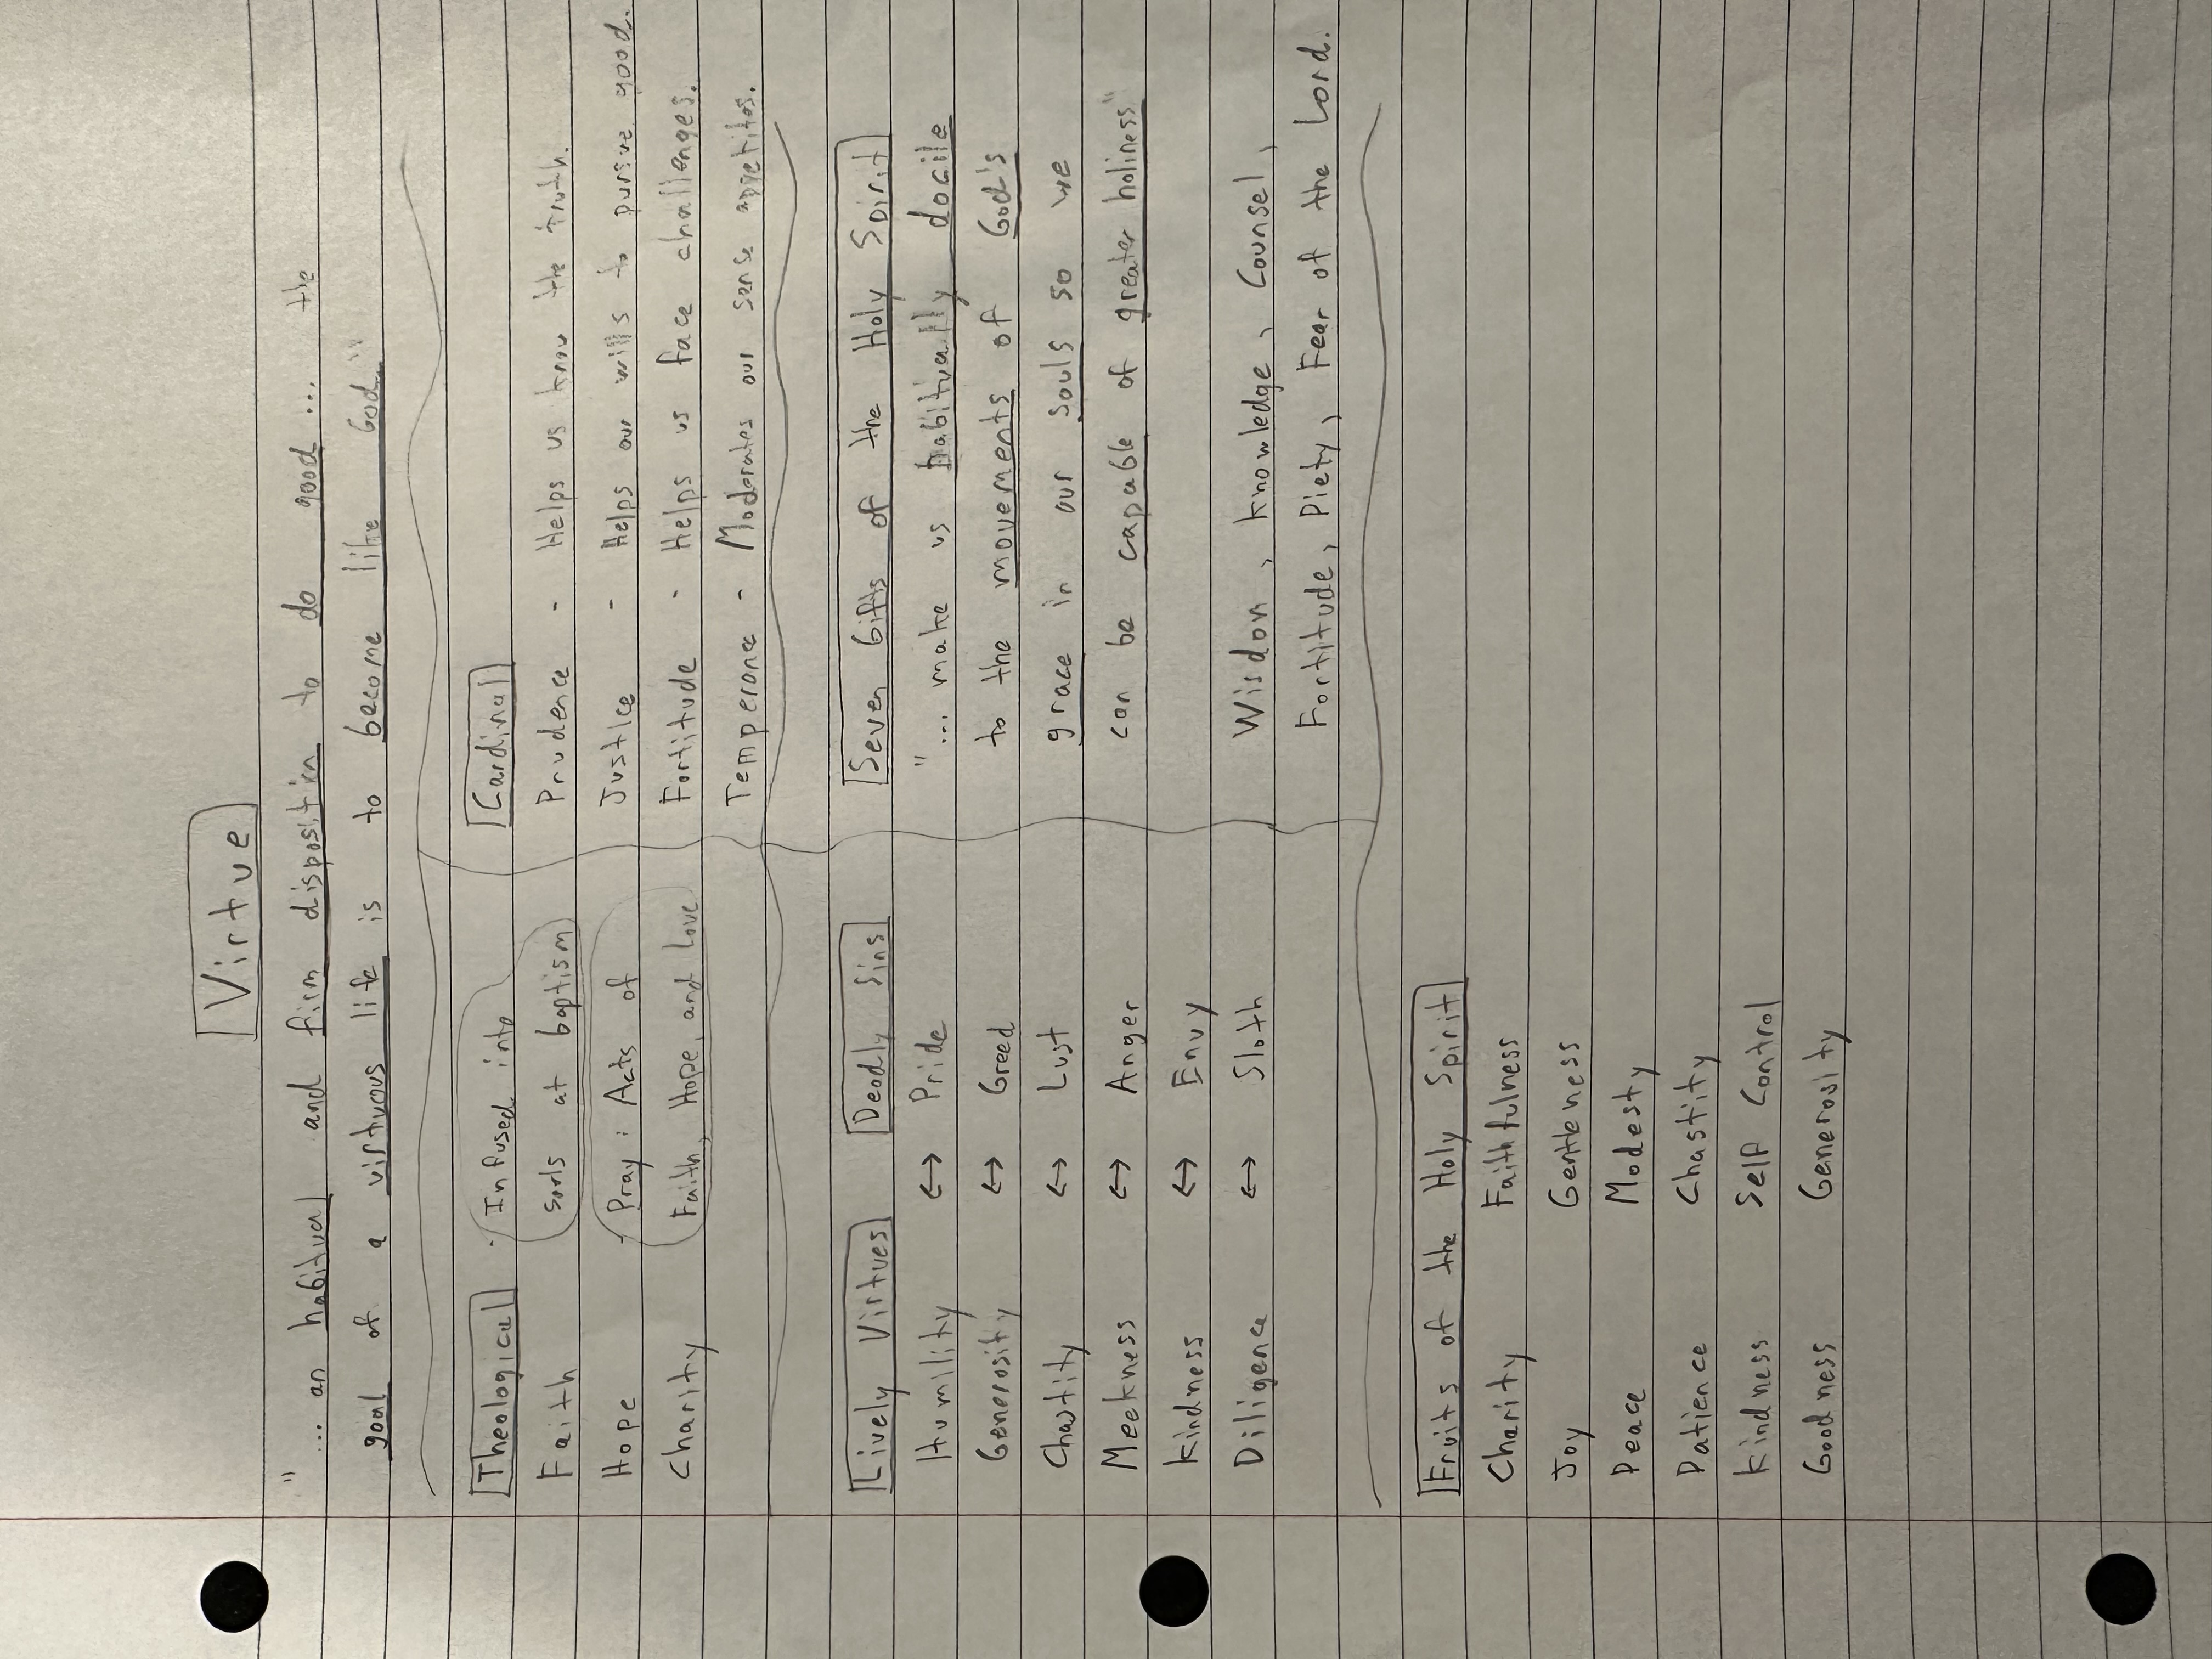 Virtue
"... an habitual and firm disposition to do good ... the
goal of a virtuous life is to become like God."
Theological
Faith
Hope
Charity
- Infused into
souls at baptism
- Pray: Acts of
Faith, Hope, and Love
Cardinal
Prudence - Helps us know the truth.
Justice - Helps our wills to pursue good.
Fortitude - Helps us face challenges.
Temperance - Moderates our sense appetites.
Lively Virtues Deadly Sins
Humility ↔ Pride
Generosity ↔ Greed
Chastity ↔ Lust
Meekness ↔ Anger
Kindness ↔ Envy
Diligence ↔ Sloth
Seven Gifts of the Holy Spirit
"... make us habitually docile
to the movements of God's
grace in our souls so we
can be capable of greater holiness"
Wisdom, Knowledge, Counsel,
Fortitude, Piety, Fear of the Lord.
Fruits of the Holy Spirit
Charity Faithfulness
Joy Gentleness
Peace Modesty
Patience Chastity
Kindness Self Control
Goodness Generosity